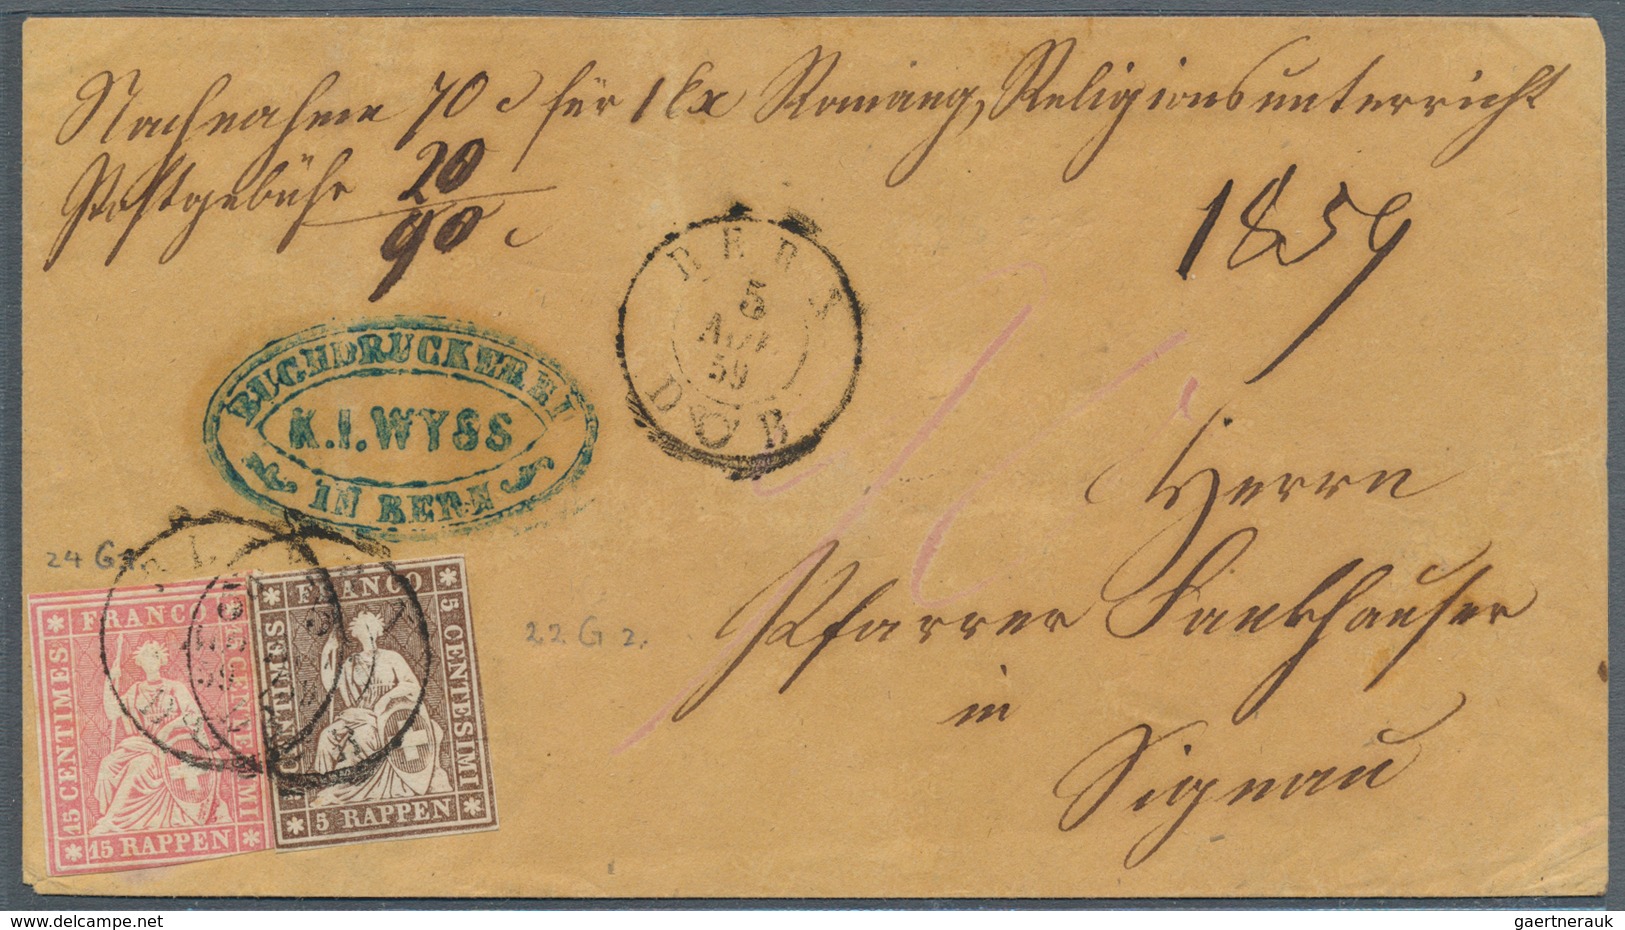 Nachnahme 70 c für 1 Ex Romang, Religionsunterricht
Postgebühr 20
90 c
1859
BERN
5
59
BUCHDRUCKEREI
K.I.WYSS
IN BERN
Herrn
Pfarrer Fankhauser
in
Signau
24 G
22 G 2.
FRANCO
15 CENTIMES
CENTESIMI
15 RAPPEN
FRANCO
CENTIMES
5 CENTESIMI
5 RAPPEN
delcampe.net
gaertnerauk